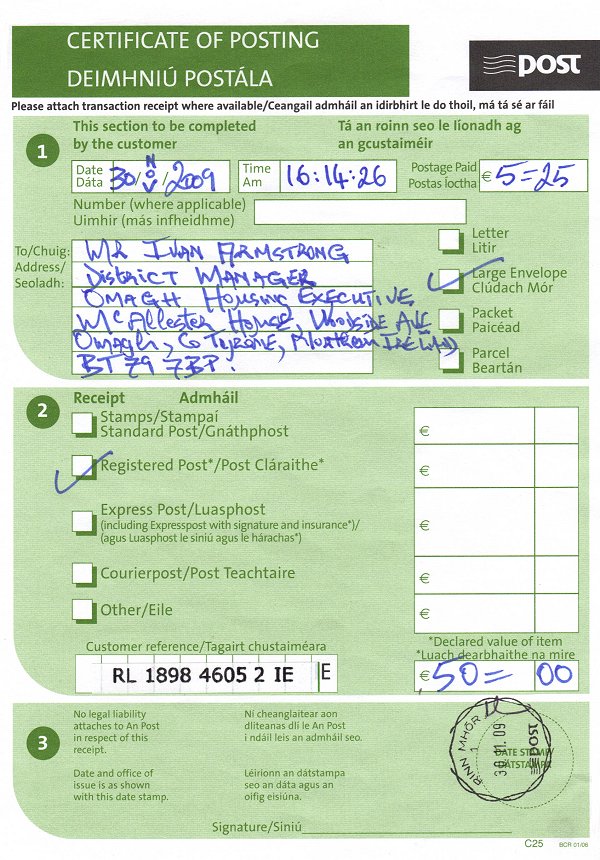 CERTIFICATE OF POSTING
DEIMHNIÚ POSTÁLA
post
Please attach transaction receipt where available/Ceangail admháil an idirbhirt le do thoil, má tá sé ar fáil
1
This section to be completed by the customer
Tá an roinn seo le líonadh ag an gcustaiméir
Date
Dáta
30/NOV/2009
Time
Am
16:14:26
Postage Paid
Postas íoctha
€ 5=25
Number (where applicable)
Uimhir (más infheidhme)
To/Chuig:
Address/
Seoladh:
Mr Ivan Armstrong
District Manager
Omagh Housing Executive
McAllester House, Woodside Ave
Omagh, Co Tyrone, Northern Ireland
BT79 7BP.
Letter
Litir
Large Envelope
Clúdach Mór
Packet
Paicéad
Parcel
Beartán
2
Receipt Admháil
Stamps/Stampaí
Standard Post/Gnáthphost
€
Registered Post*/Post Cláraithe*
€
Express Post/Luasphost
(including Expresspost with signature and insurance*)/
(agus Luasphost le siniú agus le hárachas*)
€
Courierpost/Post Teachtaire
€
Other/Eile
€
Customer reference/Tagairt chustaiméara
RL 1898 4605 2 IE
E
*Declared value of item
*Luach dearbhaithe na míre
€ 50= 00
3
No legal liability
attaches to An Post
in respect of this
receipt.
Ní cheanglaítear aon
dliteanas dlí le An Post
i ndáil leis an admháil seo.
Date and office of
issue is as shown
with this date stamp.
Léiríonn an dátstampa
seo an dáta agus an
oifig eisiúna.
DATE STAMP/
DÁTSTAMPA
RINN MHÓR
30.11.09
post
Signature/Siniú
C25
BCR 01/06